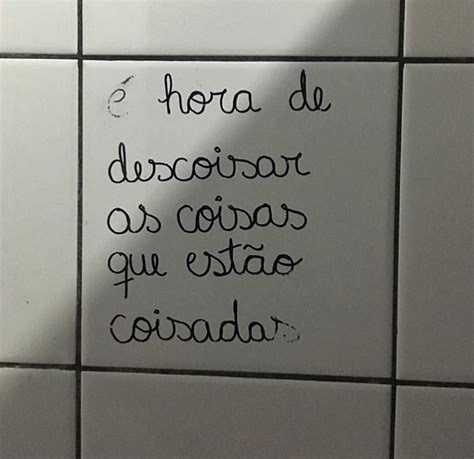 é hora de
descoisar
as coisas
que estão
coisadas